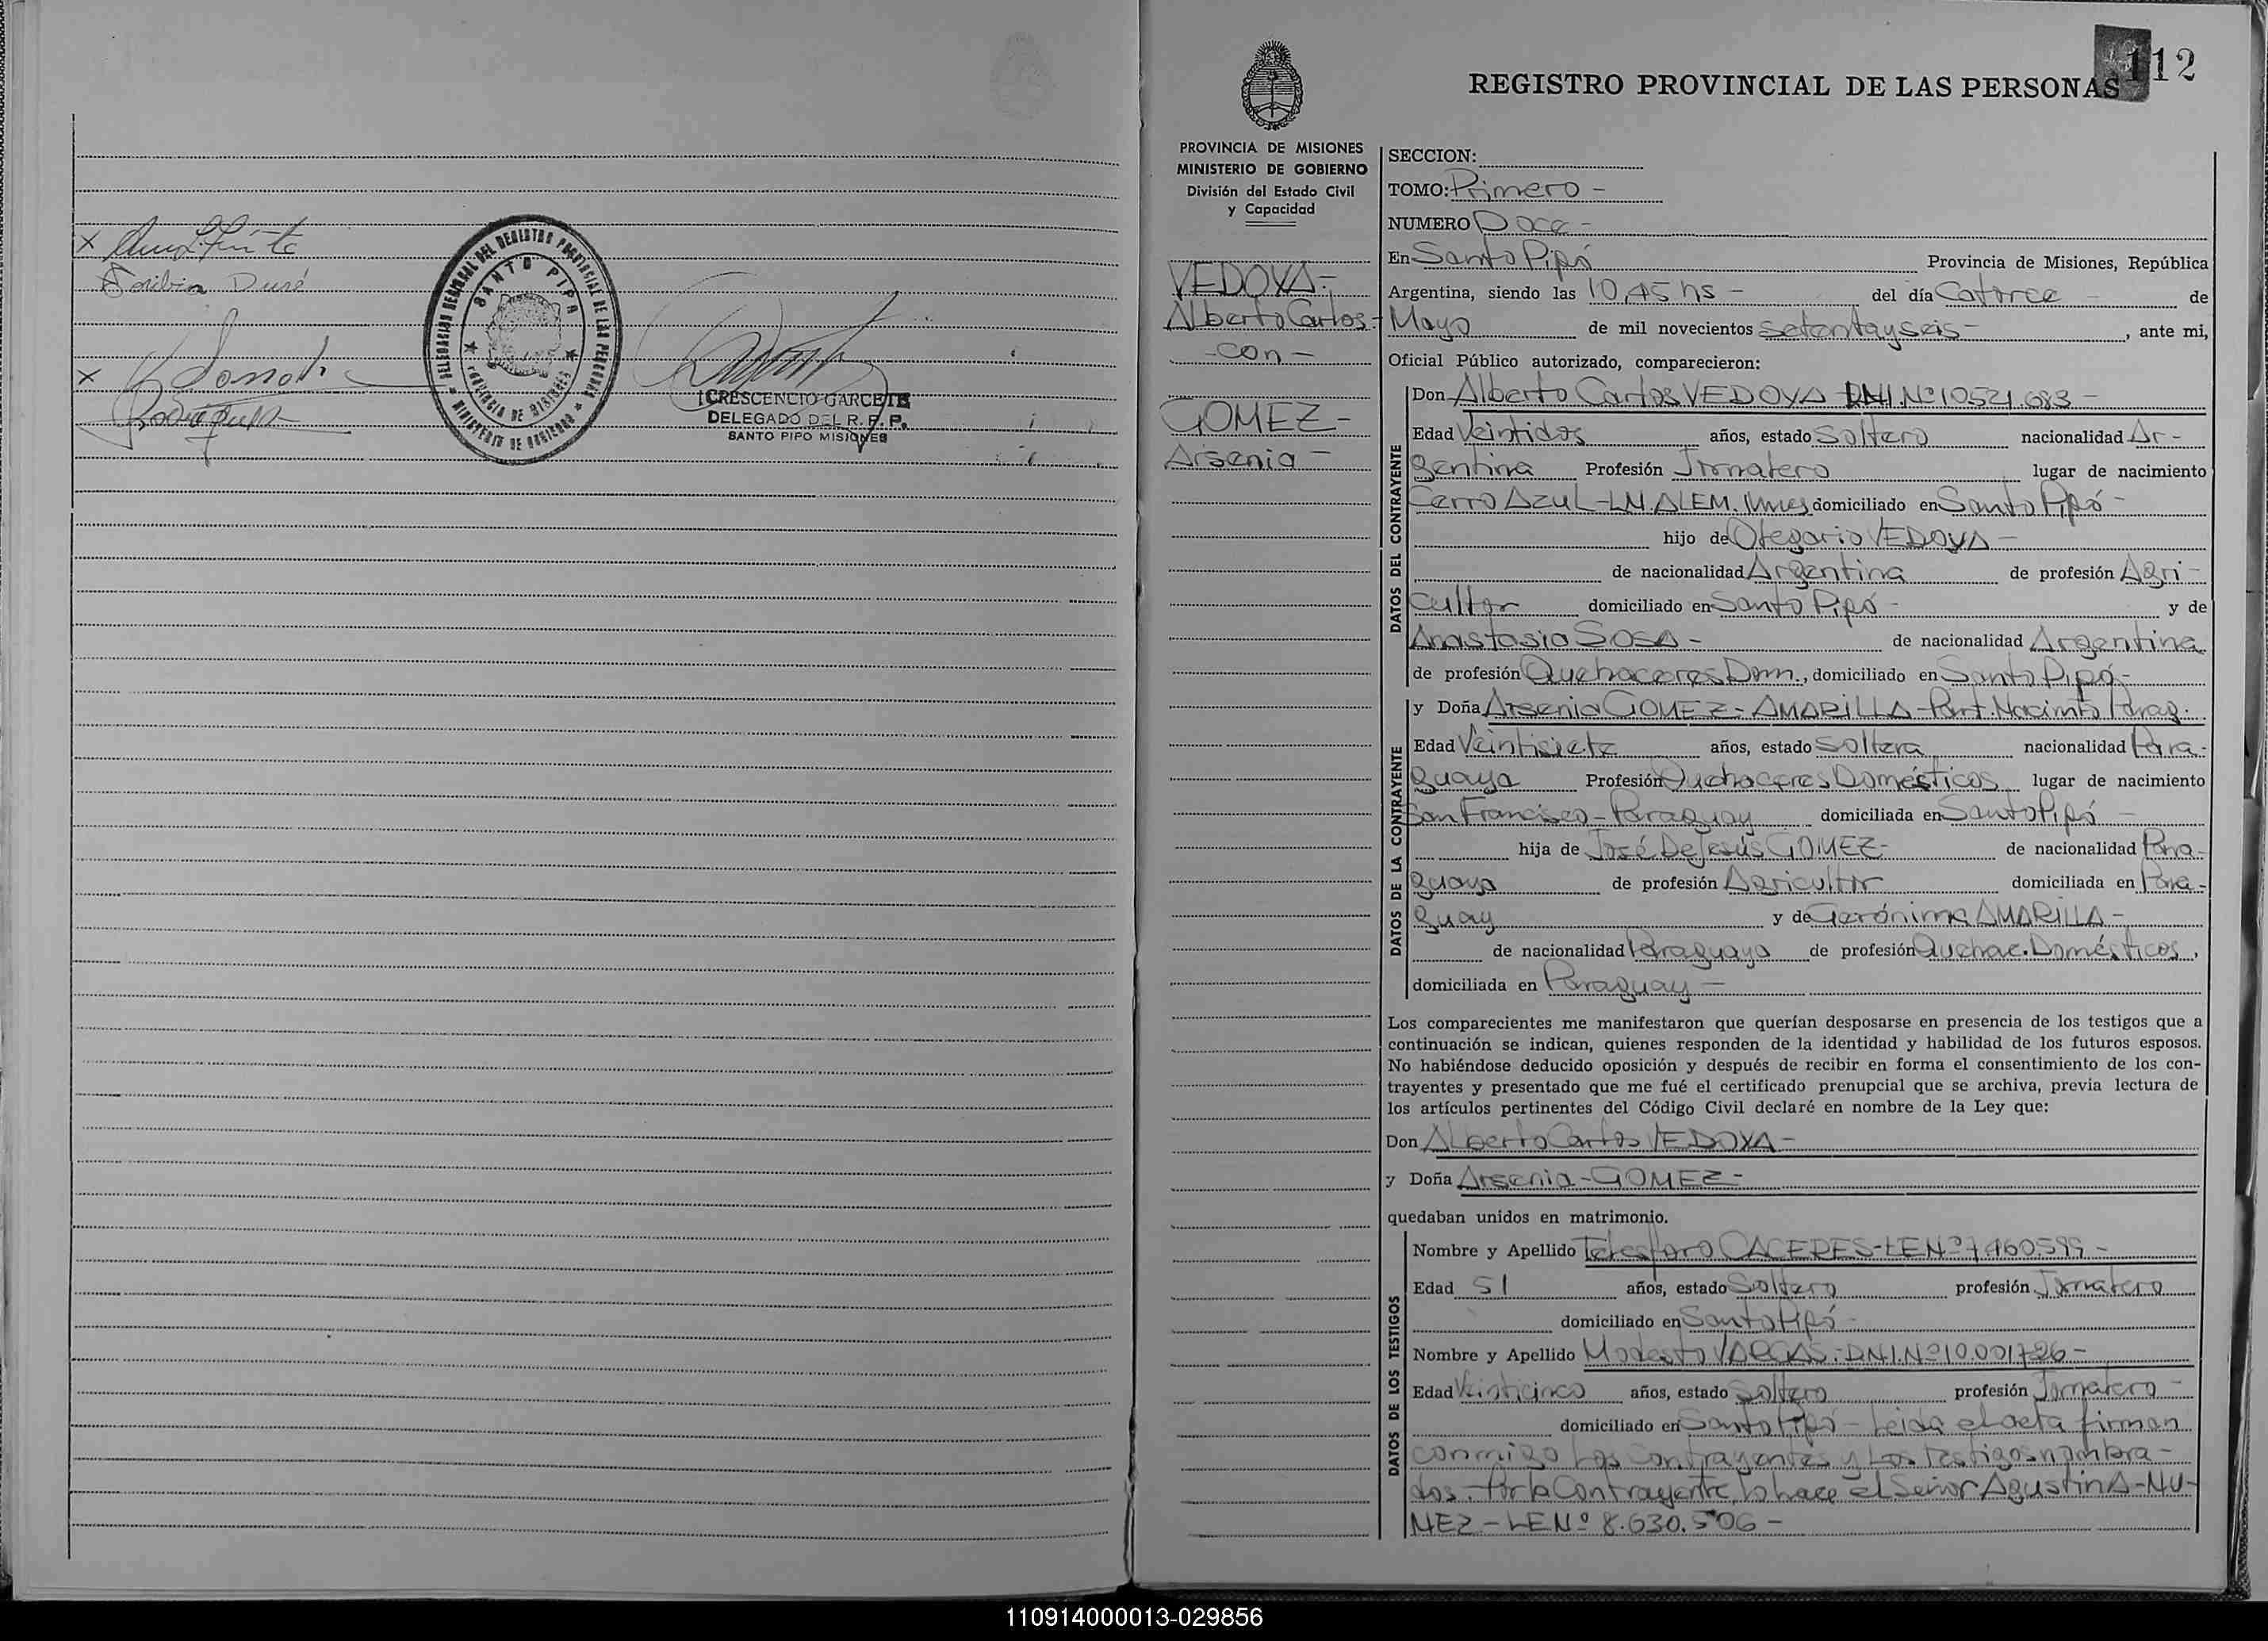 Toribia Duré
DELEGACION REGIONAL DEL REGISTRO PROVINCIAL DE LAS PERSONAS
SANTO PIPO
PROVINCIA DE MISIONES
MINISTERIO DE GOBIERNO
Rodriguez
CRESCENCIO GARCETE
DELEGADO DEL R. P. P.
SANTO PIPO MISIONES
112
REGISTRO PROVINCIAL DE LAS PERSONAS
PROVINCIA DE MISIONES
MINISTERIO DE GOBIERNO
División del Estado Civil
y Capacidad
VEDOYA-
Alberto Carlos-
-con-
GOMEZ-
Arsenia-
SECCION:
TOMO: Primero-
NUMERO Doce-
En Santo Pipó Provincia de Misiones, República
Argentina, siendo las 10,45 hs- del día Catorce- de
Mayo de mil novecientos setentayseis-, ante mi,
Oficial Público autorizado, comparecieron:
DATOS DEL CONTRAYENTE
Don Alberto Carlos VEDOYA DNI.Nº10.521.683-
Edad Veintidos años, estado Soltero nacionalidad Ar-
gentina Profesión Jornalero lugar de nacimiento
Cerro AzuL-LN.ALEM. Mnes domiciliado en Santo Pipó-
hijo de Olegario VEDOYA-
de nacionalidad Argentina de profesión Agri-
cultor domiciliado en Santo Pipó- y de
Anastasia SOSA- de nacionalidad Argentina
de profesión Quehaceres Dom., domiciliado en Santo Pipó-
DATOS DE LA CONTRAYENTE
y Doña Arsenia GOMEZ-AMARILLA-Part.Nacimto Parag.
Edad Veintisiete años, estado soltera nacionalidad Para-
guaya Profesión Quehaceres Domésticos lugar de nacimiento
San Francisco-Paraguay domiciliada en Santo Pipó-
hija de José DeJesús GOMEZ- de nacionalidad Para-
guaya de profesión Agricultor domiciliada en Para-
guay y de Gerónima AMARILLA-
de nacionalidad Paraguaya de profesión Quehac.Domésticos,
domiciliada en Paraguay-
Los comparecientes me manifestaron que querían desposarse en presencia de los testigos que a
continuación se indican, quienes responden de la identidad y habilidad de los futuros esposos.
No habiéndose deducido oposición y después de recibir en forma el consentimiento de los con-
trayentes y presentado que me fué el certificado prenupcial que se archiva, previa lectura de
los artículos pertinentes del Código Civil declaré en nombre de la Ley que:
Don ALberto Carlos VEDOYA-
y Doña Arsenia-GOMEZ-
quedaban unidos en matrimonio.
DATOS DE LOS TESTIGOS
Nombre y Apellido Telesforo CACERES-LENº7.460.599-
Edad 51 años, estado Soltero profesión Jornalero
domiciliado en Santo Pipó-
Nombre y Apellido Modesto VARGAS-DNI.Nº10.001.726-
Edad Veinticinco años, estado Soltero profesión Jornalero-
domiciliado en Santo Pipó-Leida el acta firman
conmigo Los contrayentes y Los testigos nombra-
dos. Por la Contrayente, lo hace el Señor Agustin A-NU-
NEZ-LENº 8.630.506-
110914000013-029856